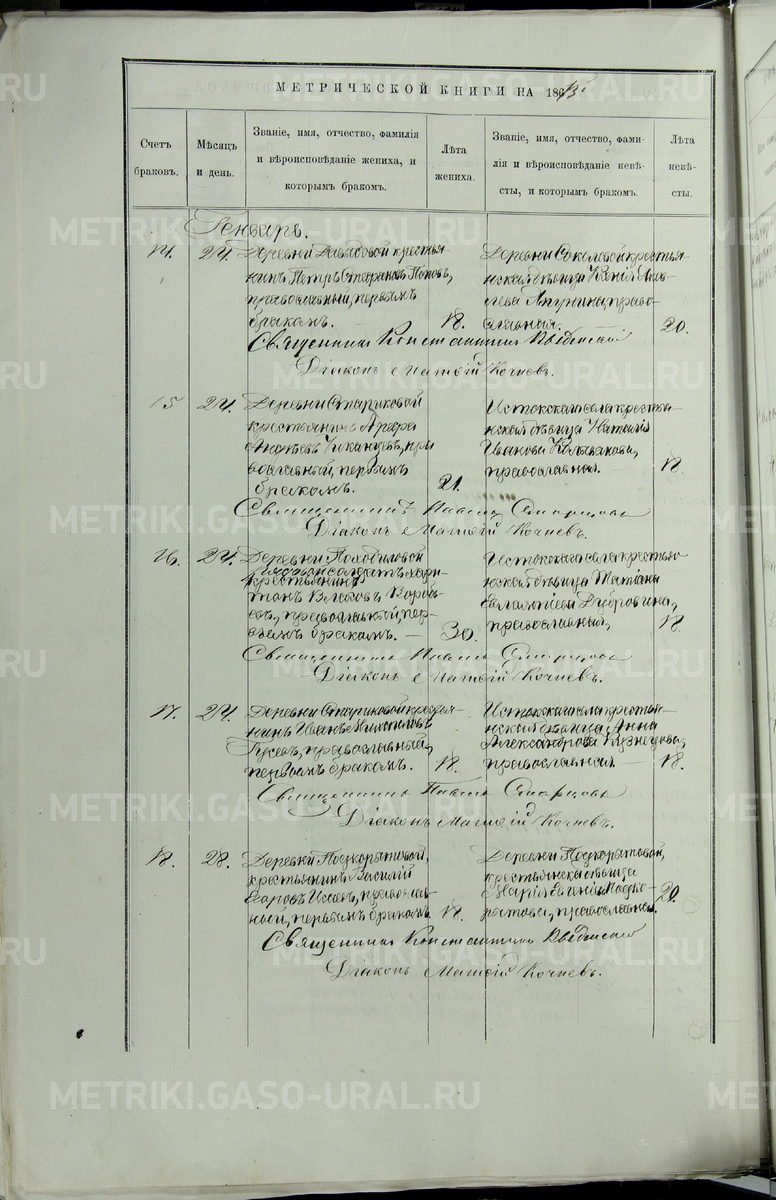 МЕТРИЧЕСКОЙ КНИГИ НА 186
Счетъ браковъ.
Мѣсяцъ и день.
Званіе, имя, отчество, фамилія
и вѣроисповѣданіе жениха, и
которымъ бракомъ.
Лѣта
жениха.
Званіе, имя, отчество, фами-
лія и вѣроисповѣданіе невѣ-
сты, и которымъ бракомъ.
Лѣта
невѣ-
сты.
Генварь.
14. 24.
Деревни Давыдовой крестья-
нинъ Петръ Поповъ,
православный, первымъ
бракомъ.
18.
Деревни Соколовой крестья-
нская дѣвица Ксенія Яков-
лева право-
славная.
20.
Священникъ Константинъ
Діаконъ Матѳій Кочневъ.
15 24.
Деревни Стариковой
крестьянинъ
пра-
вославный, первымъ
бракомъ.
21.
Истокскаго села крестья-
нская дѣвица Наталія
Иванова
православная.
18.
Священникъ Павелъ Смарцовъ
Діаконъ Матѳій Кочневъ.
16. 24.
Деревни Походиловой
солдатъ Хари-
крестьянинъ
тонъ Власовъ
православный, пер-
вымъ бракомъ.
30.
Истокскаго села крестья-
нская дѣвица Татіана
Евлампіева Дубровина,
православная,
18.
Священникъ Павелъ Смарцовъ
Діаконъ Матѳій Кочневъ.
17. 24.
Деревни Стариковой крестья-
нинъ Иванъ
Гусевъ, православный,
первымъ бракомъ.
18.
Истокскаго села крестья-
нская дѣвица Анна
Александрова Кузнецова,
православная
18.
Священникъ Павелъ Смарцовъ
Діаконъ Матѳій Кочневъ.
18. 28.
Деревни Подкорытовой,
крестьянинъ Василій
Егоровъ Исаевъ, православ-
ный, первымъ бракомъ
18.
Деревни Подкорытовой,
крестьянская дѣвица
Марія Подко-
рытова, православная.
20.
Священникъ Константинъ
Діаконъ Матѳій Кочневъ.
METRIKI.GASO-URAL.RU